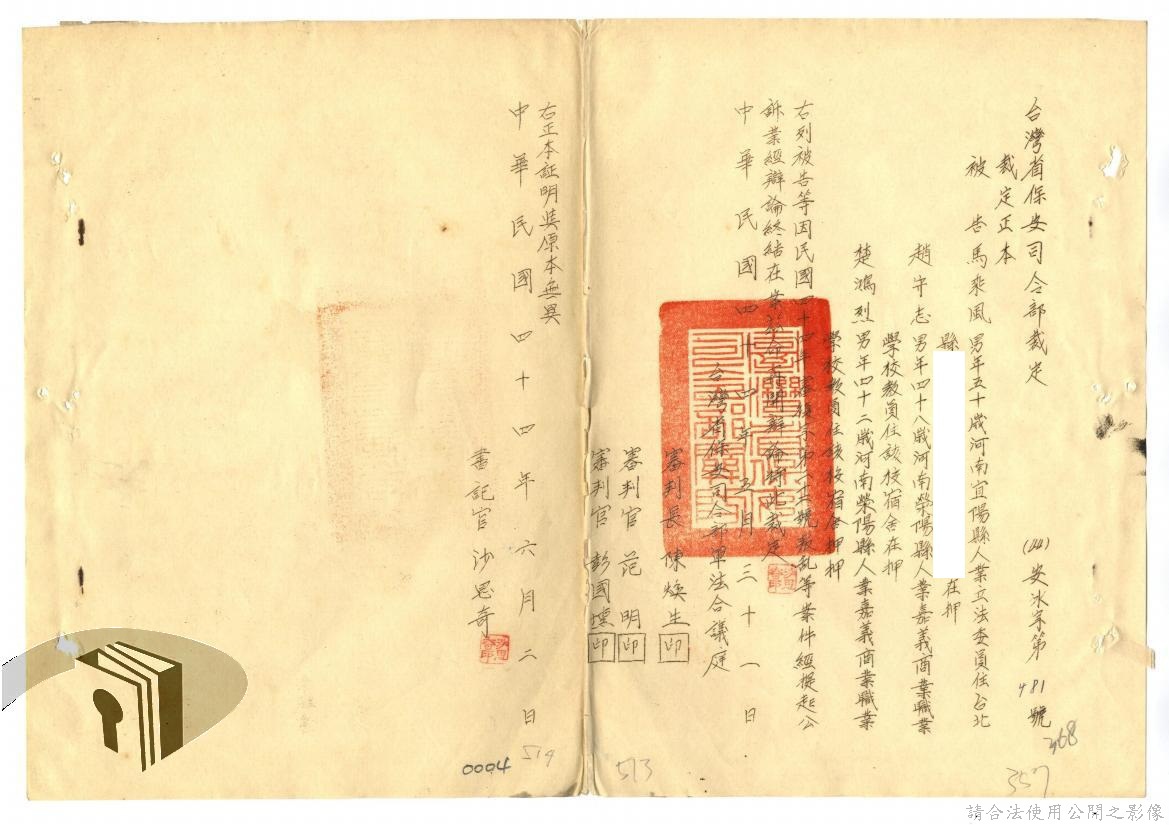 台灣省保安司令部裁定
(44)安水字第481號
裁定正本
被告馬乘風男年五十歲河南宜陽縣人業立法委員住台北
縣
在押
趙守志男年四十八歲河南滎陽縣人業嘉義商業職業
學校教員住該校宿舍在押
楚鴻烈男年四十二歲河南滎陽縣人業嘉義商業職業
學校教員住該校宿舍在押
右列被告等因民國四十四年審
號叛乱等案件經提起公
訴業經辯論終結在案茲
再開辯論特此裁定
中華民國四十四年五月三十一日
台灣省保安司令部軍法合議庭
審判長陳煥生印
審判官范明印
審判官彭國壎印
右正本証明與原本無異
中華民國四十四年六月二日
書記官沙思奇
368
357
513
514
0004
請合法使用公開之影像